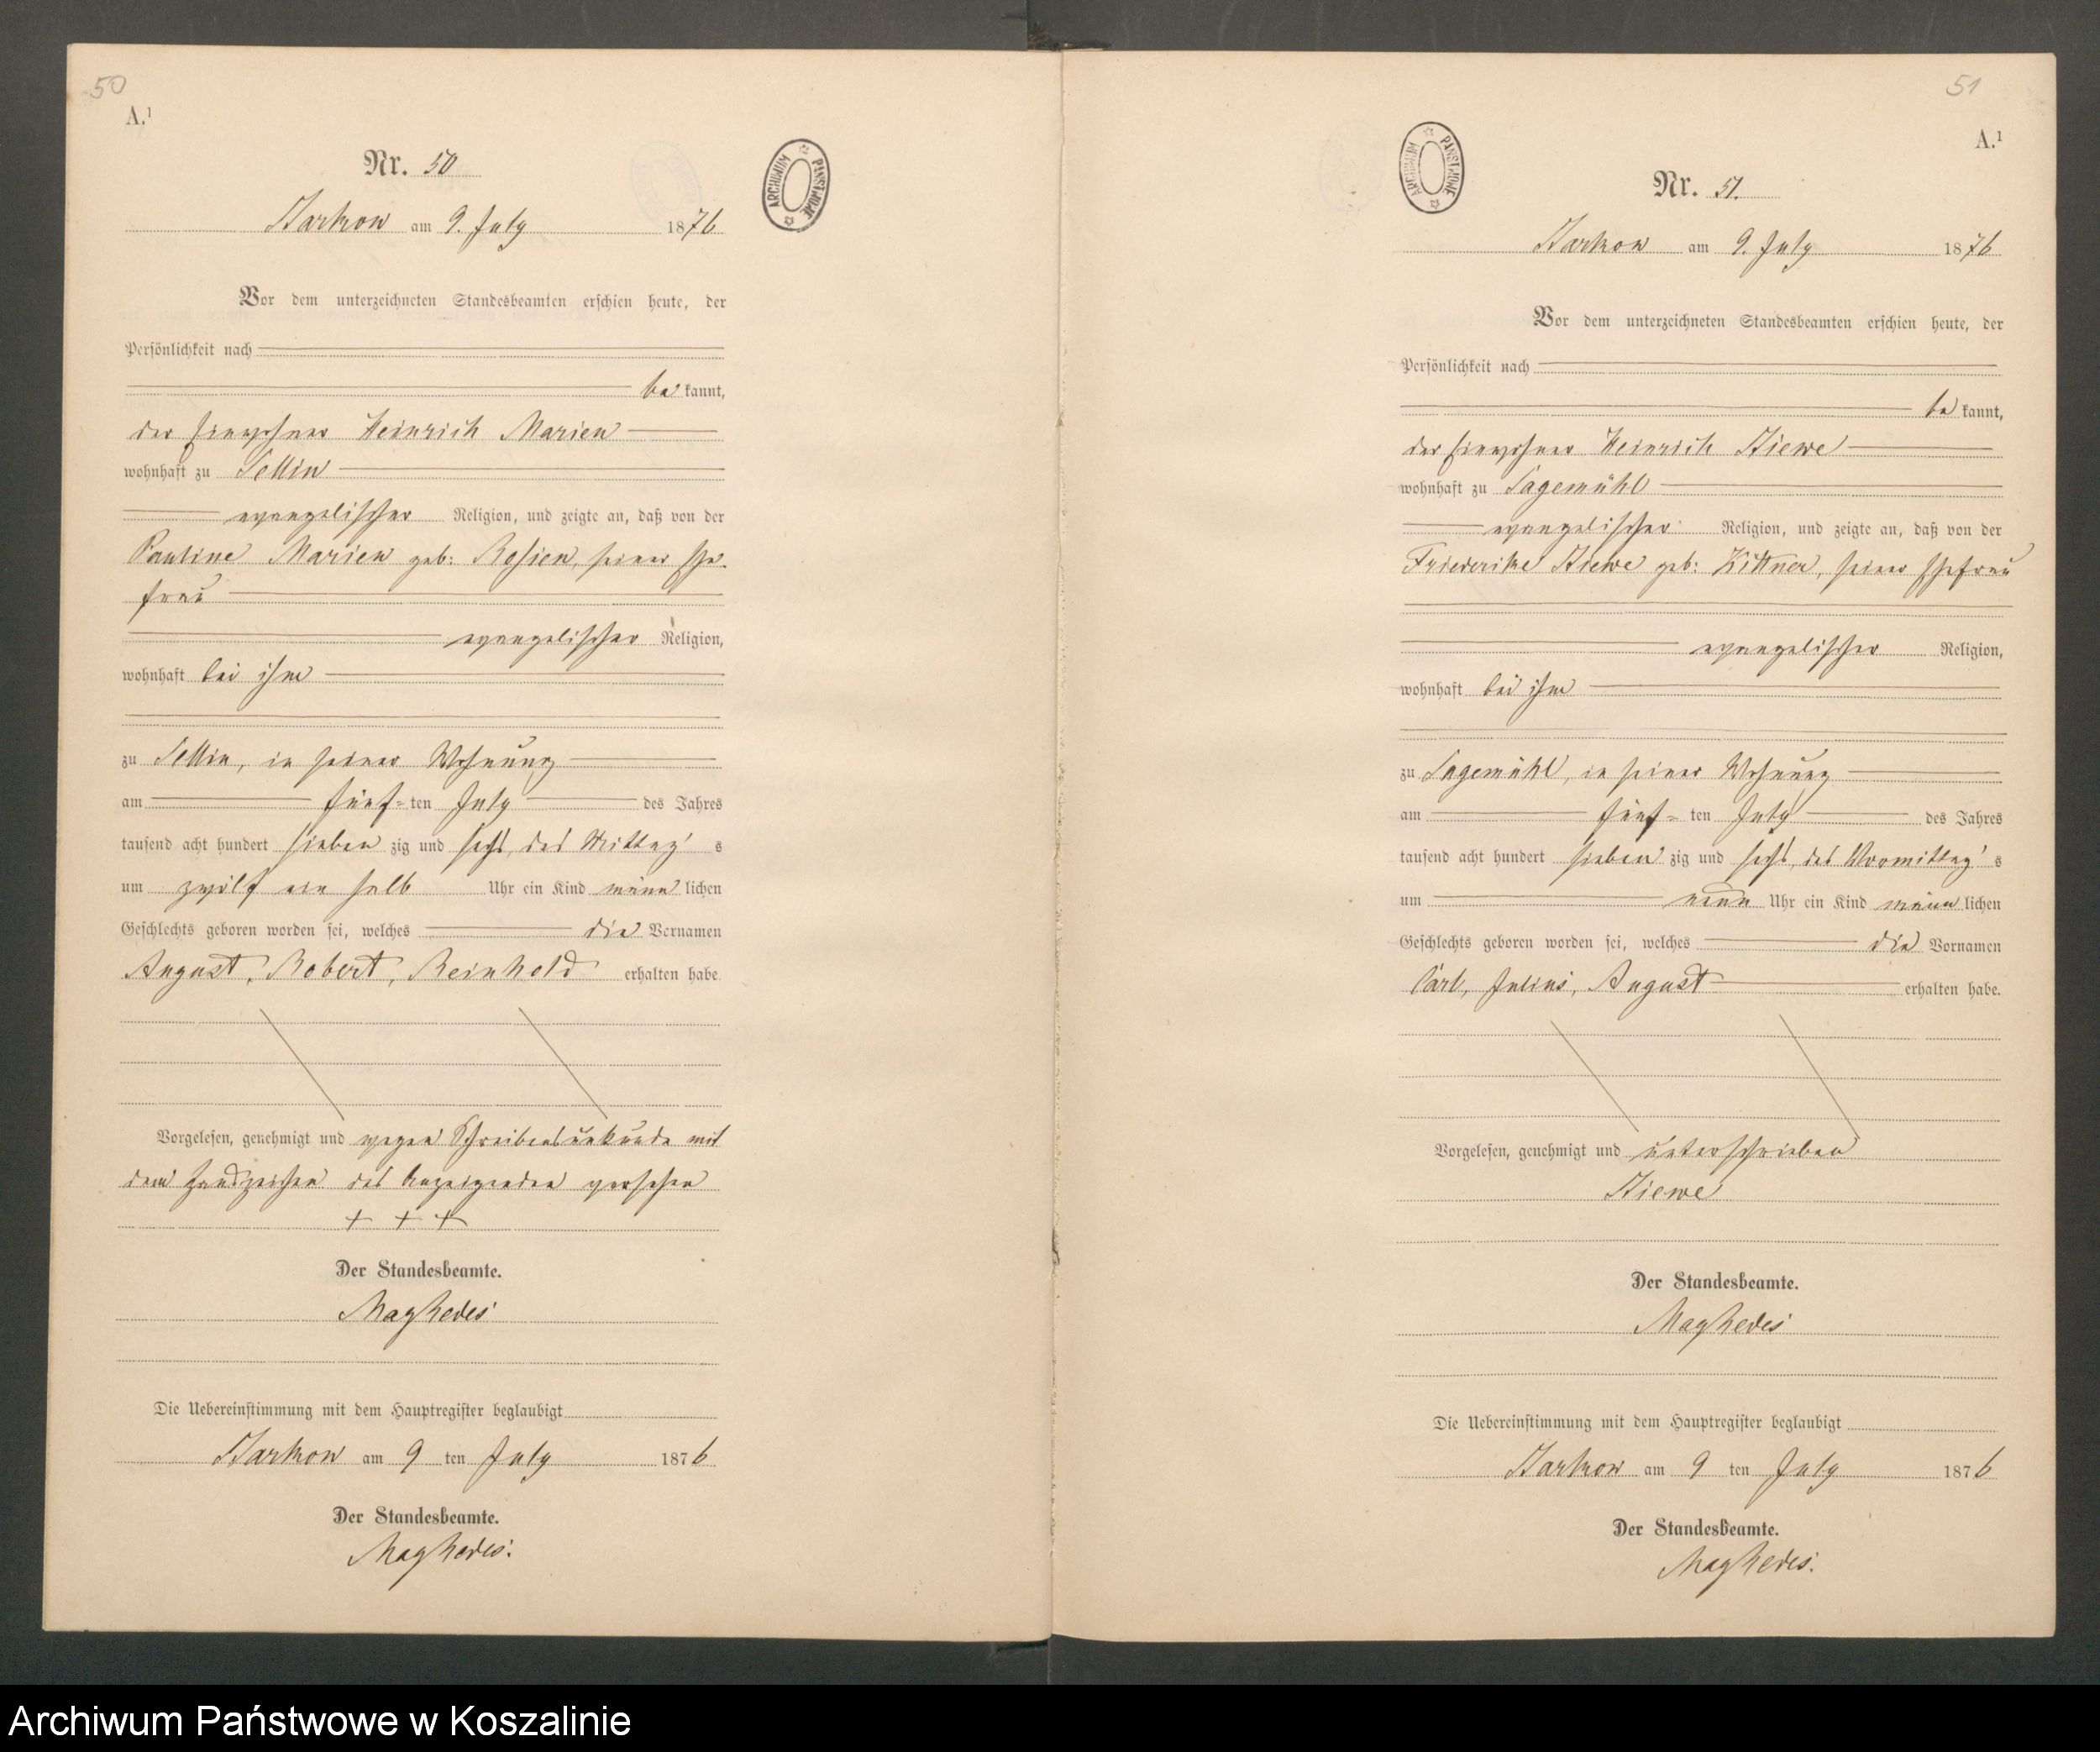 50
A.¹
Nr. 50
ARCHIWUM PAŃSTWOWE
Barkow am 9. July 1876
Vor dem unterzeichneten Standesbeamten erschien heute, der
Persönlichkeit nach
bekannt,
der Einwohner Heinrich Marien
wohnhaft zu Sellin
evangelischer Religion, und zeigte an, daß von der
Pauline Marien geb: Rosien, seiner Ehe-
frau
evangelischer Religion,
wohnhaft bei ihm
zu Sellin, in seiner Wohnung
am fünf-ten July des Jahres
tausend acht hundert siebenzig und sechs, des Mittag's
um zwölf ein halb Uhr ein Kind männlichen
Geschlechts geboren worden sei, welches die Vornamen
August, Robert, Reinhold erhalten habe
Vorgelesen, genehmigt und wegen Schreibensunkunde mit
dem Handzeichen des Anzeigenden versehen
+ + +
Der Standesbeamte.
Die Uebereinstimmung mit dem Hauptregister beglaubigt
Barkow am 9 ten July 1876
Der Standesbeamte.
51
A.¹
ARCHIWUM PAŃSTWOWE
Nr. 51.
Barkow am 9. July 1876
Vor dem unterzeichneten Standesbeamten erschien heute, der
Persönlichkeit nach
bekannt,
der Einwohner Heinrich Stiewe
wohnhaft zu Sagemühl
evangelischer Religion, und zeigte an, daß von der
Friederike Stiewe geb: Kittner, seiner Ehefrau
evangelischer Religion,
wohnhaft bei ihm
zu Sagemühl, in seiner Wohnung
am fünf-ten July des Jahres
tausend acht hundert siebenzig und sechs, des Vormittag's
um neun Uhr ein Kind männlichen
Geschlechts geboren worden sei, welches die Vornamen
Carl, Julius, August erhalten habe.
Vorgelesen, genehmigt und unterschrieben
Stiewe
Der Standesbeamte.
Die Uebereinstimmung mit dem Hauptregister beglaubigt
Barkow am 9 ten July 1876
Der Standesbeamte.
Archiwum Państwowe w Koszalinie